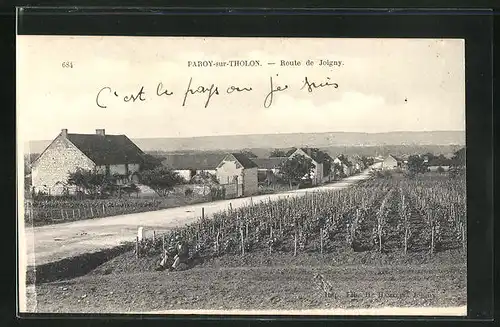 684 PAROY-sur-THOLON. — Route de Joigny.
C'est le pays ou je suis